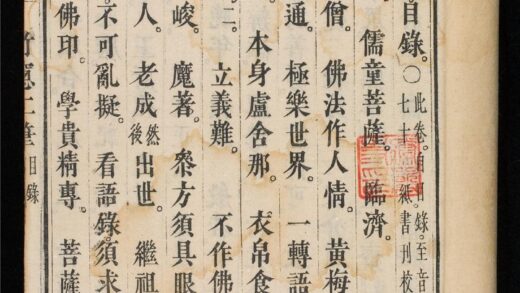 目錄。○此卷。自目錄。至音
七十紙書刊校
儒童菩薩。臨濟。
僧。佛法作人情。黃梅
通。極樂世界。一轉語
本身盧舍那。衣帛食
二。立義難。不作佛
峻。魔著。叅方須具眼
人。老成然後出世。繼祖
不可亂擬。看語錄。須求
佛印。學貴精專。菩薩
竹窻二筆目錄